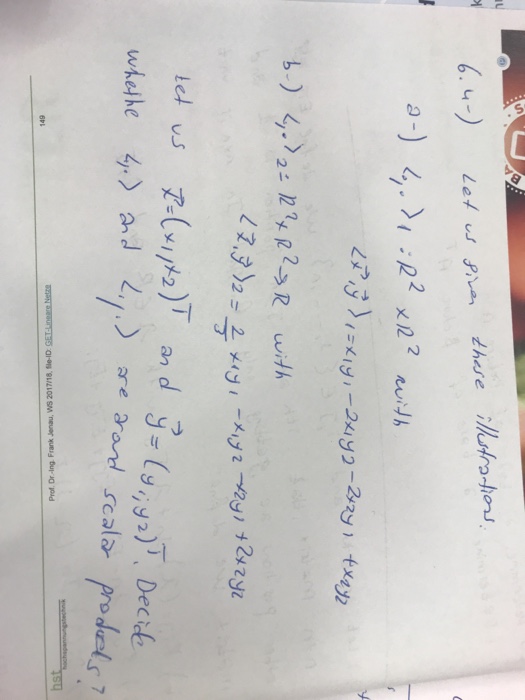 6.4-) Let us given these illustrations.
a-) <,.>1 : R² x R² with
<x⃗,y⃗>1 = x1y1 - 2x1y2 - 2x2y1 + x2y2
b-) <,.>2 = R² x R² → R with
<x⃗,y⃗>2 = 2 x1y1 - x1y2 - x2y1 + 2x2y2
Let us x⃗ = (x1,x2)ᵀ and y⃗ = (y1,y2)ᵀ. Decide
whethe <,.> and <,.> are scalar products?
149
Prof. Dr.-Ing. Frank Jenau, WS 2017/18, file-ID: GET-Lineare Netze
hst
hochspannungstechnik